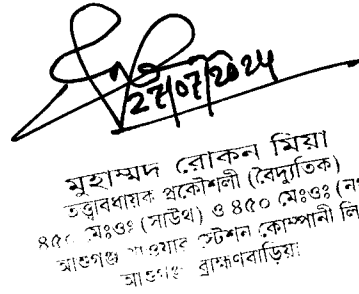 27/07/2024
মুহাম্মদ রোকন মিয়া
তত্ত্বাবধায়ক প্রকৌশলী (বৈদ্যুতিক)
৪৫০ মেঃওঃ (সাউথ) ও ৪৫০ মেঃওঃ
আশুগঞ্জ পাওয়ার স্টেশন কোম্পানী লি
আশুগঞ্জ ব্রাহ্মণবাড়িয়া